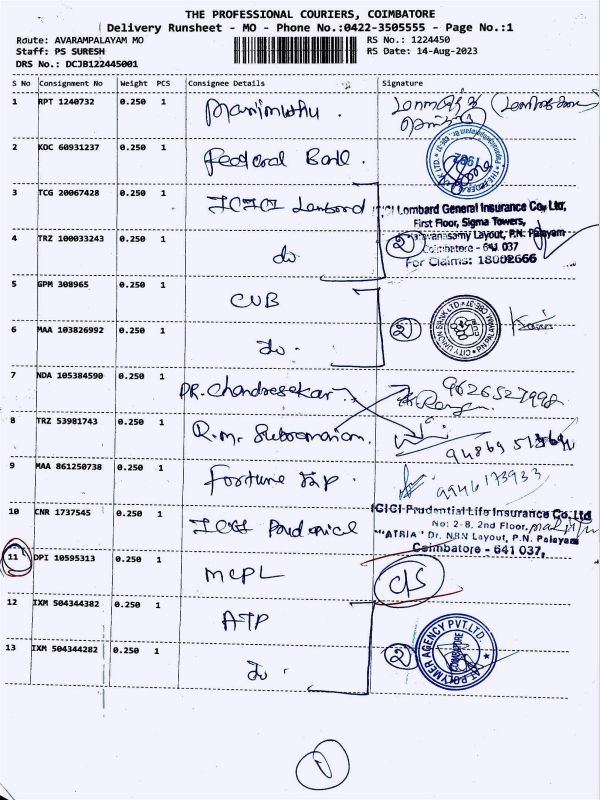 THE PROFESSIONAL COURIERS, COIMBATORE
Delivery Runsheet - MO - Phone No.:0422-3505555 - Page No.:1
Route: AVARAMPALAYAM MO
RS No.: 1224450
Staff: PS SURESH
RS Date: 14-Aug-2023
DRS No.: DCJB122445001
S No Consignment No Weight PCS Consignee Details Signature
1 RPT 1240732 0.250 1 Manimuthu
2 KOC 60931237 0.250 1 Federal Bank.
3 TCG 20067428 0.250 1 ICICI Lombord
ICICI Lombard General Insurance Co, Ltd,
First Floor, Sigma Towers,
Layout, P.N. Palayam
Coimbatore - 641 037
For Claims: 18002666
4 TRZ 100033243 0.250 1 do 2
5 GPM 308965 0.250 1 CUB
CITY UNION BANK LTD.
6 MAA 103826992 0.250 1 do. 2
7 NDA 105384590 0.250 1 DR. Chandresekar 9626527998
8 TRZ 53981743 0.250 1 R.M. Subramaniam.
9 MAA 861250738 0.250 1 Fortune 9946173933
10 CNR 1737545 0.250 1 ICICI
ICICI Prudential Life Insurance Co. Ltd
No: 2-8, 2nd Floor,
"ATRIA" Dr. NRN Layout, P.N. Palayam
Coimbatore - 641 037,
11 DPI 10595313 0.250 1 MCPL C/S
12 IXM 504344382 0.250 1 ATP
POLYMER AGENCY PVT.LTD
COIMBATORE
13 IXM 504344282 0.250 1 do. 2
1